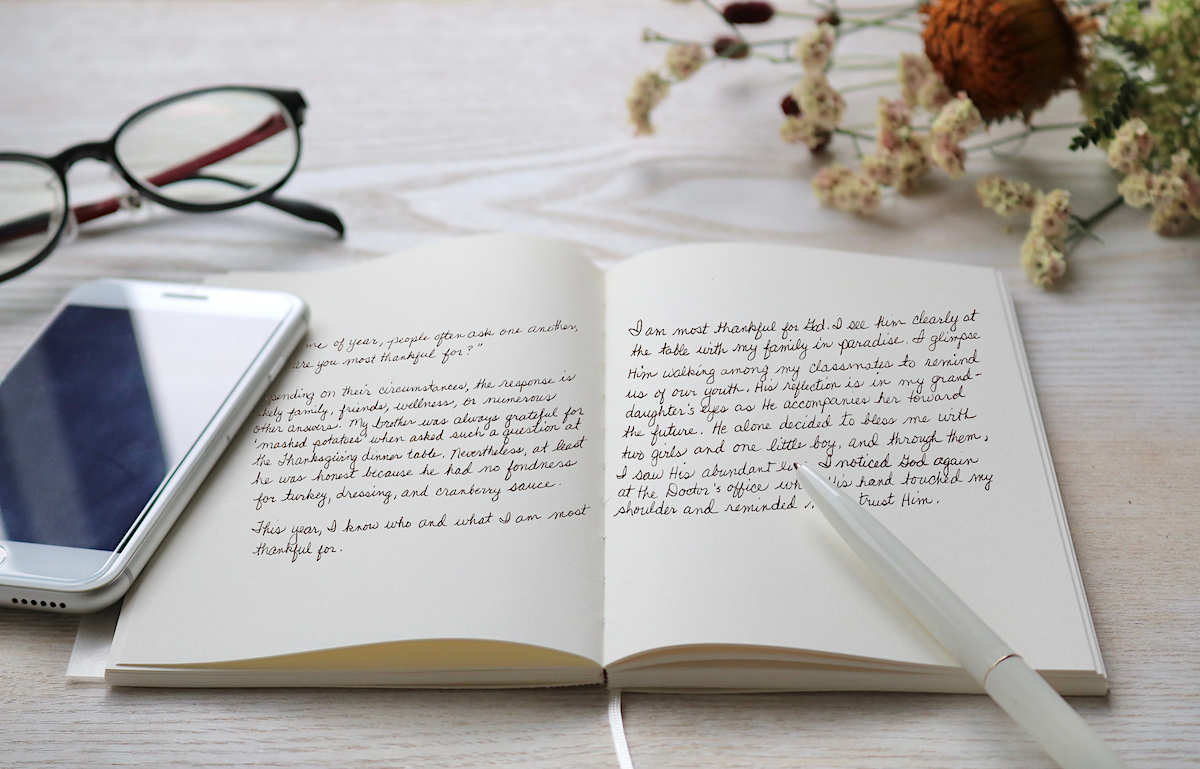 of year, people often ask one another,
are you most thankful for?"
on their circumstances, the response is
family, friends, wellness, or numerous
other answers. My brother was always grateful for
"mashed potatoes" when asked such a question at
the Thanksgiving dinner table. Nevertheless, at least
he was honest because he had no fondness
for turkey, dressing, and cranberry sauce.
This year, I know who and what I am most
thankful for.
I am most thankful for God. I see him clearly at
the table with my family in paradise. I glimpse
Him walking among my classmates to remind
us of our youth. His reflection is in my grand-
daughter's eyes as He accompanies her toward
the future. He alone decided to bless me with
two girls and one little boy, and through them,
I saw His abundant I noticed God again
at the Doctor's office His hand touched my
shoulder and reminded trust Him.